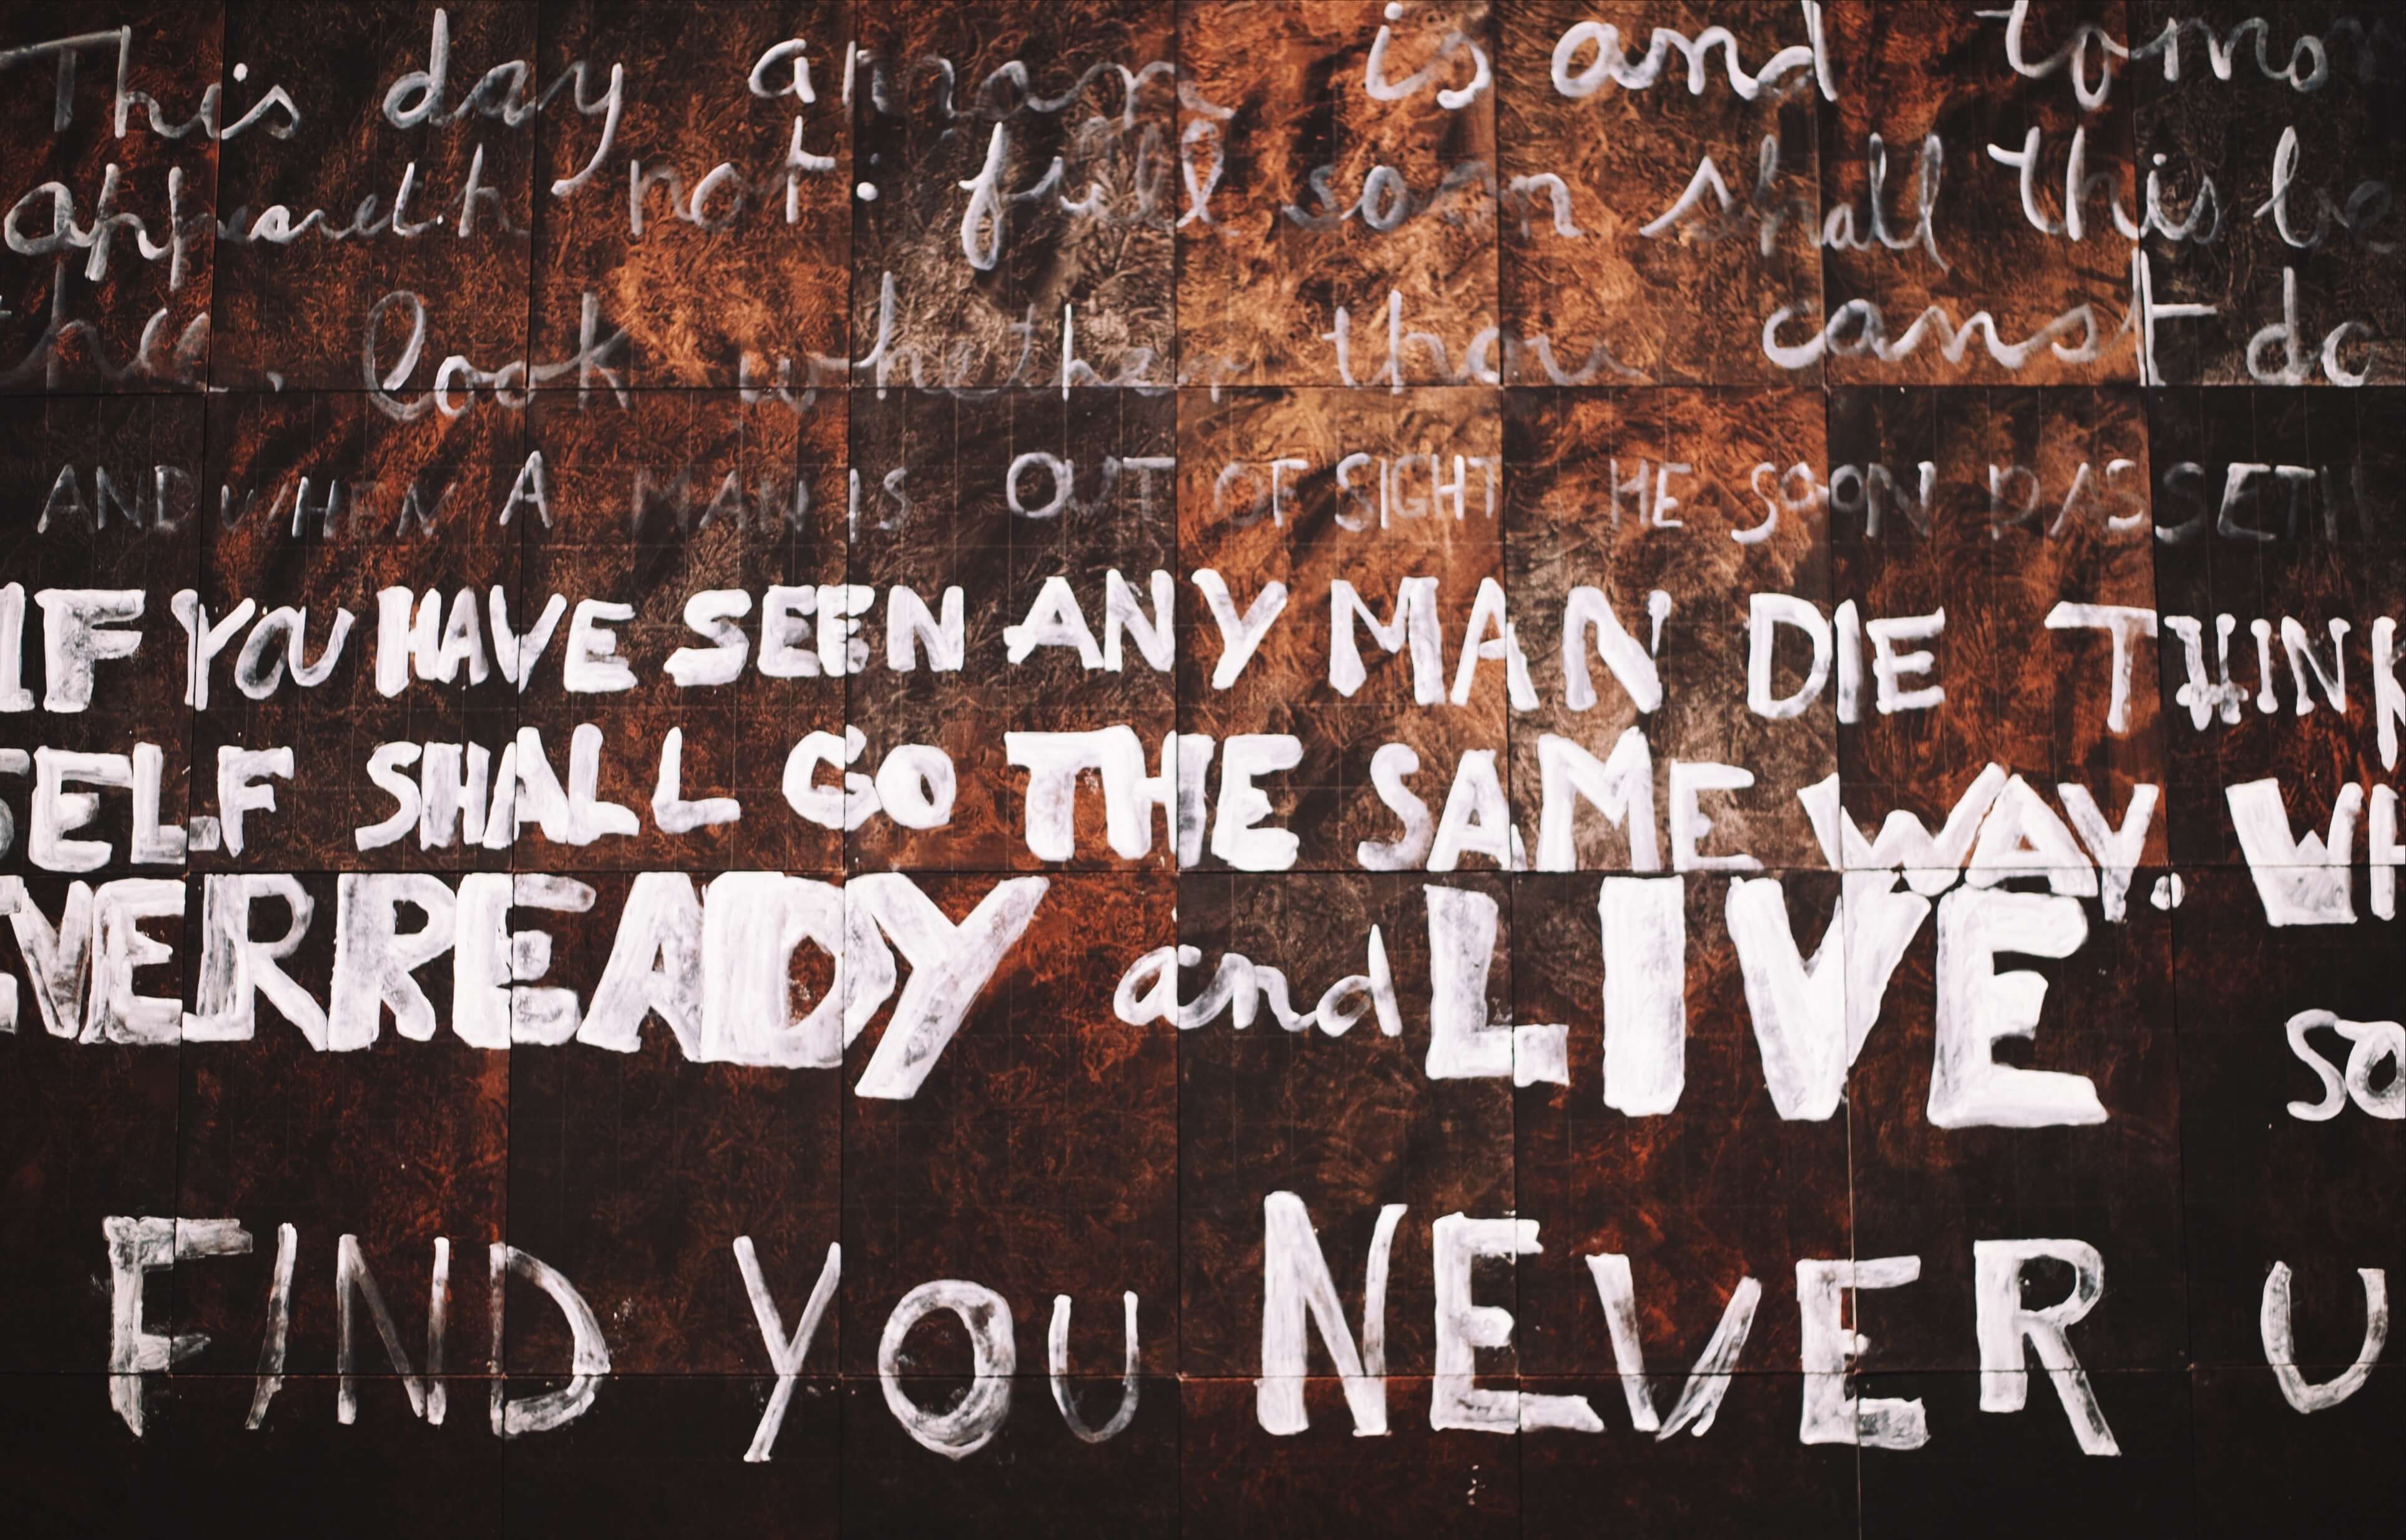 This day a man is and tomor
appeareth not: full soon shall this be
thee. look whether thou canst do
AND WHEN A MAN IS OUT OF SIGHT HE SOON PASSETH
IF YOU HAVE SEEN ANY MAN DIE THINK
SELF SHALL GO THE SAME WAY. WH
EVERREADY and LIVE so
FIND YOU NEVER U